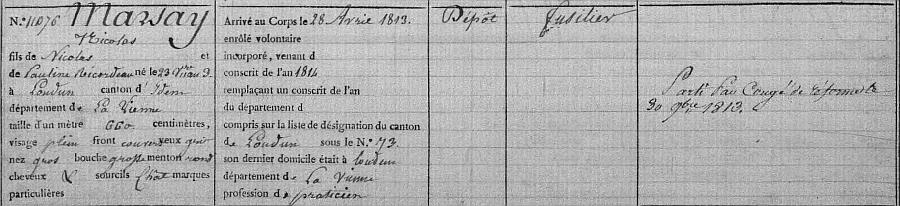 N.° 11076 Marsay
Nicolas
fils de Nicolas et
de Pauline Ricordeau né le 23
à Loudun canton d' Idem
département de La Vienne
taille d'un mètre 660 centimètres,
visage plein front couvert yeux gris
nez gros bouche grosse menton rond
cheveux & sourcils Chat marques
particulières
Arrivé au Corps le 28 Avril 1813.
enrôlé volontaire
incorporé, venant d
conscrit de l'an 1814
remplaçant un conscrit de l'an
du département d
compris sur la liste de désignation du canton
de Loudun sous le N.° 73.
son dernier domicile était à loudun
département de La Vienne
profession de praticien
Dépôt
Fusilier
Parti Par Congé de réforme le
30 9bre 1813.